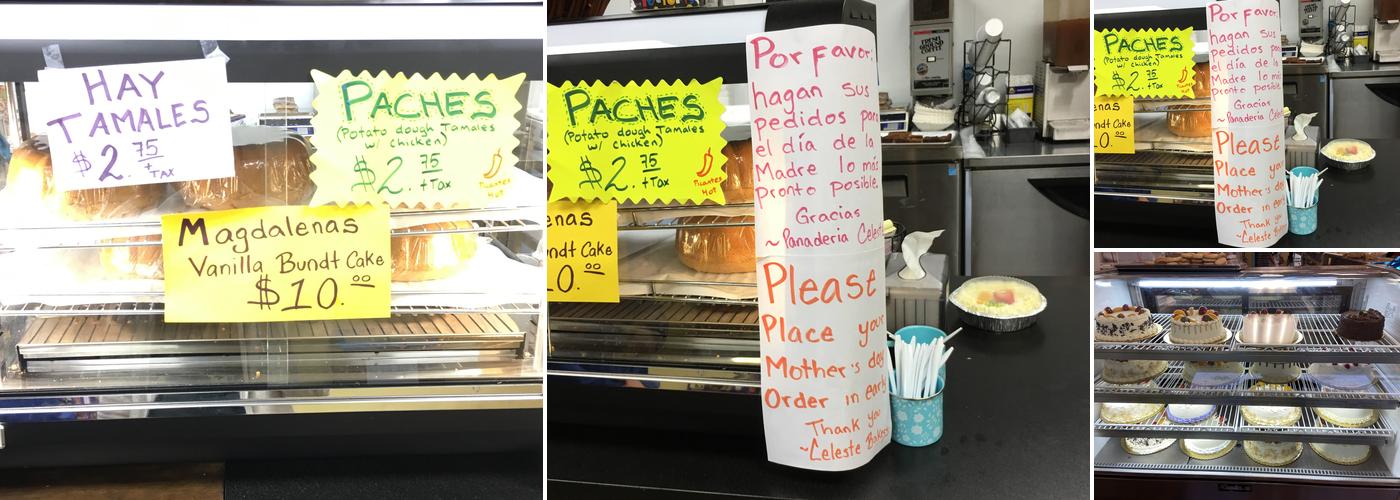 HAY
TAMALES
$2.75
+ TAX
PACHES
(Potato dough Tamales
w/ chicken)
$2.75 +Tax
Picantes
Hot
Magdalenas
Vanilla Bundt Cake
$10.00
PACHES
(Potato dough Tamales
w/ chicken)
$2.75 +Tax
Picantes
Hot
enas
ndt Cake
0.00
Por favor:
hagan sus
pedidos para
el día de la
Madre lo más
pronto posible.
Gracias
~Panaderia Celest
Please
Place your
Mother's day
Order in early
Thank you
~Celeste Bakery
FRESH
GROUND
COFFEE
PACHES
(Potato dough Tamales
w/ chicken)
$2.75 +Tax
enas
ndt Cake
0.00
Por favor:
hagan sus
pedidos para
el día de la
Madre lo más
pronto posible.
Gracias
~Panaderia Celest
Please
Place your
Mother's day
Order in early
Thank you
~Celeste Bakery